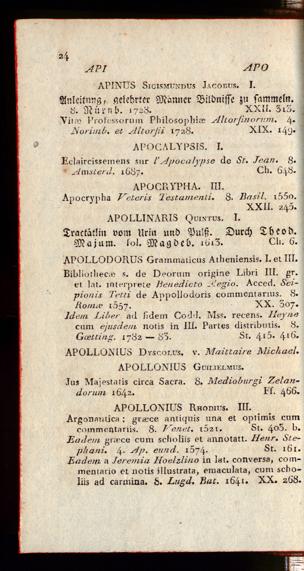 24
API APO
APINUS SIGISMUNDUS JACOBUS. I.
Anleitung, gelehrter Männer Bildnisse zu sammeln.
8. Nürnb. 1728. XXII. 313.
Vitæ Professorum Philosophiæ Altorfinorum. 4.
Norimb. et Altorfii 1728. XIX. 149.
APOCALYPSIS. I.
Eclaircissemens sur l'Apocalypse de St. Jean. 8.
Amsterd. 1687. Ch. 648.
APOCRYPHA. III.
Apocrypha Veteris Testamenti. 8. Basil. 1550.
XXII. 245.
APOLLINARIS QUINTUS. I.
Tractätlin vom Urin und Pulß. Durch Theod.
Majum. fol. Magdeb. 1613. Ch. 6.
APOLLODORUS Grammaticus Atheniensis. I. et III.
Bibliothecæ s. de Deorum origine Libri III. gr.
et lat. interprete Benedicto Aegio. Acced. Sci-
pionis Tetti de Appollodoris commentarius. 8.
Romæ 1557. XX. 307.
Idem Liber ad fidem Codd. Mss. recens. Heyne
cum ejusdem notis in III. Partes distributis. 8.
Gœtting. 1782 — 83. St. 415. 416.
APOLLONIUS DYSCOLUS, v. Maittaire Michael.
APOLLONIUS GUILIELMUS.
Jus Majestatis circa Sacra. 8. Medioburgi Zelan-
dorum 1642. Ff. 466.
APOLLONIUS RHODIUS. III.
Argonautica; græce antiquis una et optimis cum
commentariis. 8. Venet. 1521. St. 403. b.
Eadem græce cum scholiis et annotatt. Henr. Ste-
phani. 4. Ap. eund. 1574. St. 161.
Eadem a Jeremia Hoelzlino in lat. conversa, com-
mentario et notis illustrata, emaculata, cum scho-
liis ad carmina. 8. Lugd. Bat. 1641. XX. 268.